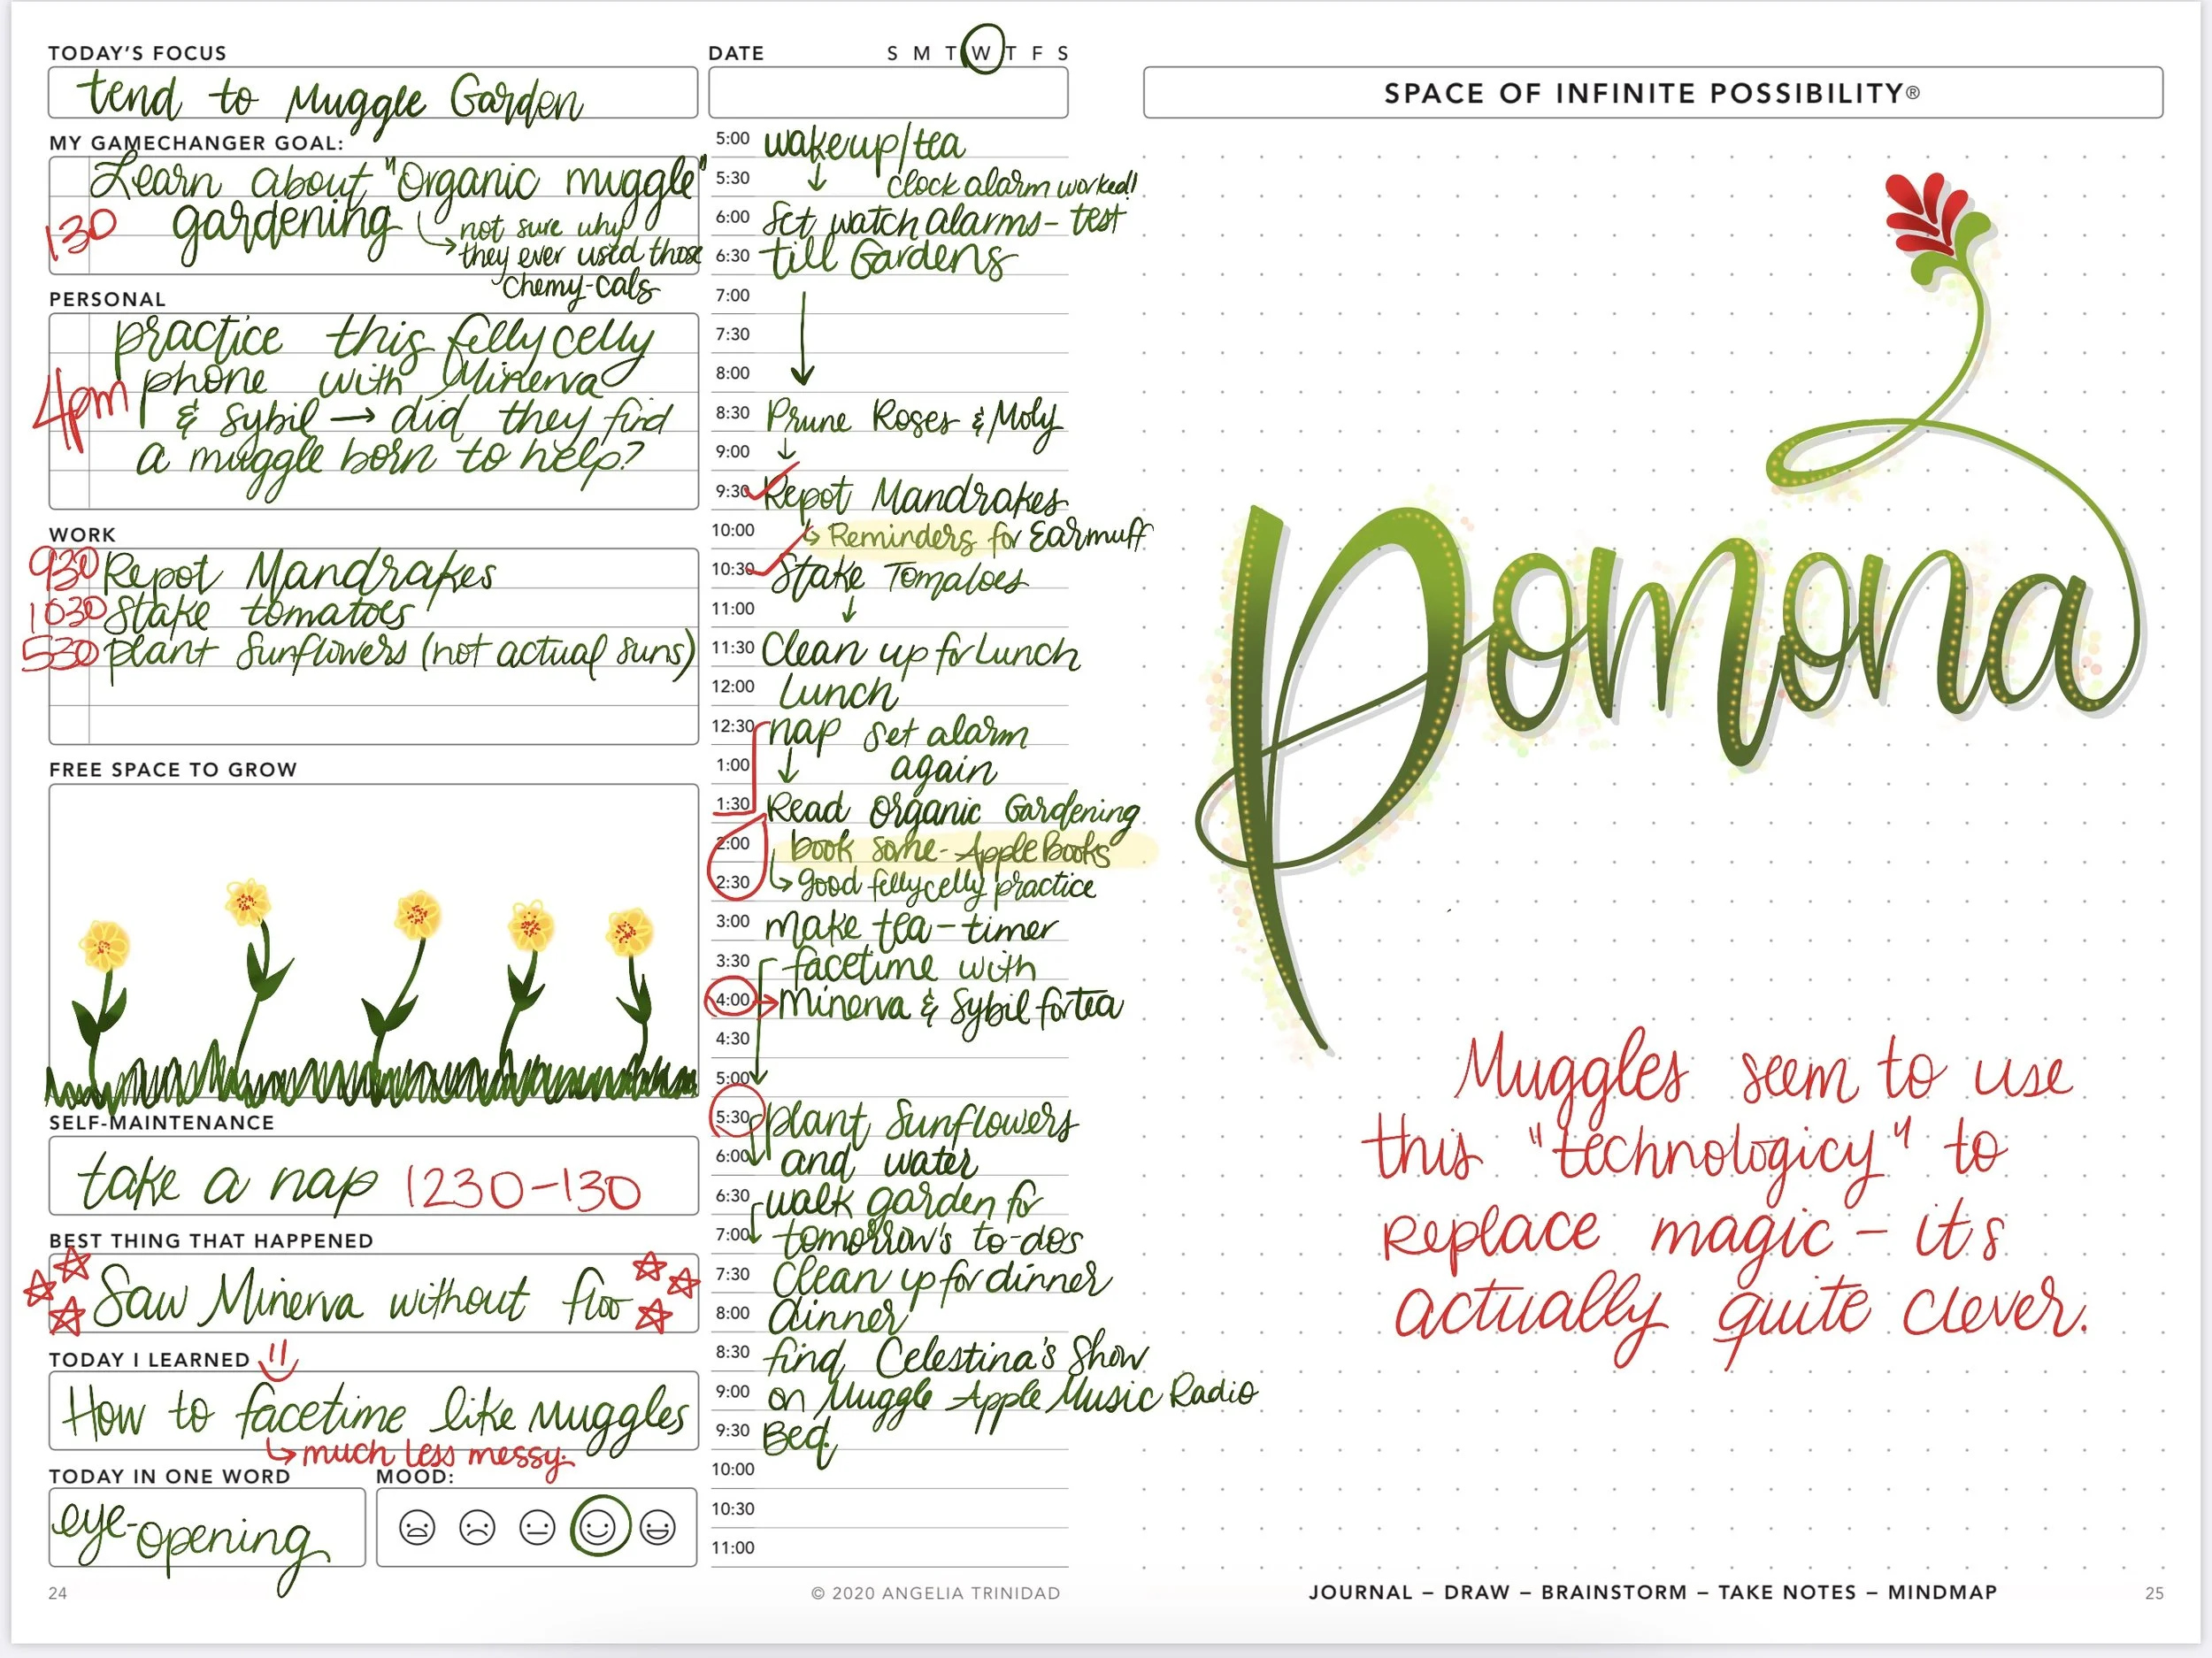 TODAY'S FOCUS
tend to Muggle Garden
MY GAMECHANGER GOAL:
Learn about "Organic muggle"
130 gardening
not sure why
they ever used those
chemy-cals
PERSONAL
practice this fellycelly
4pm phone with Minerva
& Sybil → did they find
a muggle born to help?
WORK
930 Repot Mandrakes
1030 Stake tomatoes
530 plant Sunflowers (not actual suns)
FREE SPACE TO GROW
SELF-MAINTENANCE
take a nap 1230-130
BEST THING THAT HAPPENED
Saw Minerva without floo
TODAY I LEARNED
How to facetime like Muggles
↳ much less messy.
TODAY IN ONE WORD
eye-opening
MOOD:
24
DATE S M T W T F S
5:00 wakeup/tea
5:30 ↓ clock alarm worked!
6:00 Set watch alarms - test
6:30 till Gardens
7:00
7:30
8:00
8:30 Prune Roses & Moly
9:00 ↓
9:30 Repot Mandrakes
10:00 ↳ Reminders for Earmuff
10:30 Stake Tomatoes
11:00 ↓
11:30 Clean up for Lunch
12:00 Lunch
12:30 nap set alarm
1:00 ↓ again
1:30 Read Organic Gardening
2:00 book some - Apple Books
2:30 ↳ good fellycelly practice
3:00 make tea - timer
3:30 facetime with
4:00 → Minerva & Sybil for tea
4:30
5:00
5:30 plant Sunflowers
6:00 and water
6:30 walk garden for
7:00 tomorrow's to-dos
7:30 Clean up for dinner
8:00 dinner
8:30 find Celestina's Show
9:00 on Muggle Apple Music Radio
9:30 Bed.
10:00
10:30
11:00
© 2020 ANGELIA TRINIDAD
SPACE OF INFINITE POSSIBILITY®
Pomona
Muggles seem to use
this "technologicy" to
replace magic - its
actually quite clever.
JOURNAL – DRAW – BRAINSTORM – TAKE NOTES – MINDMAP
25